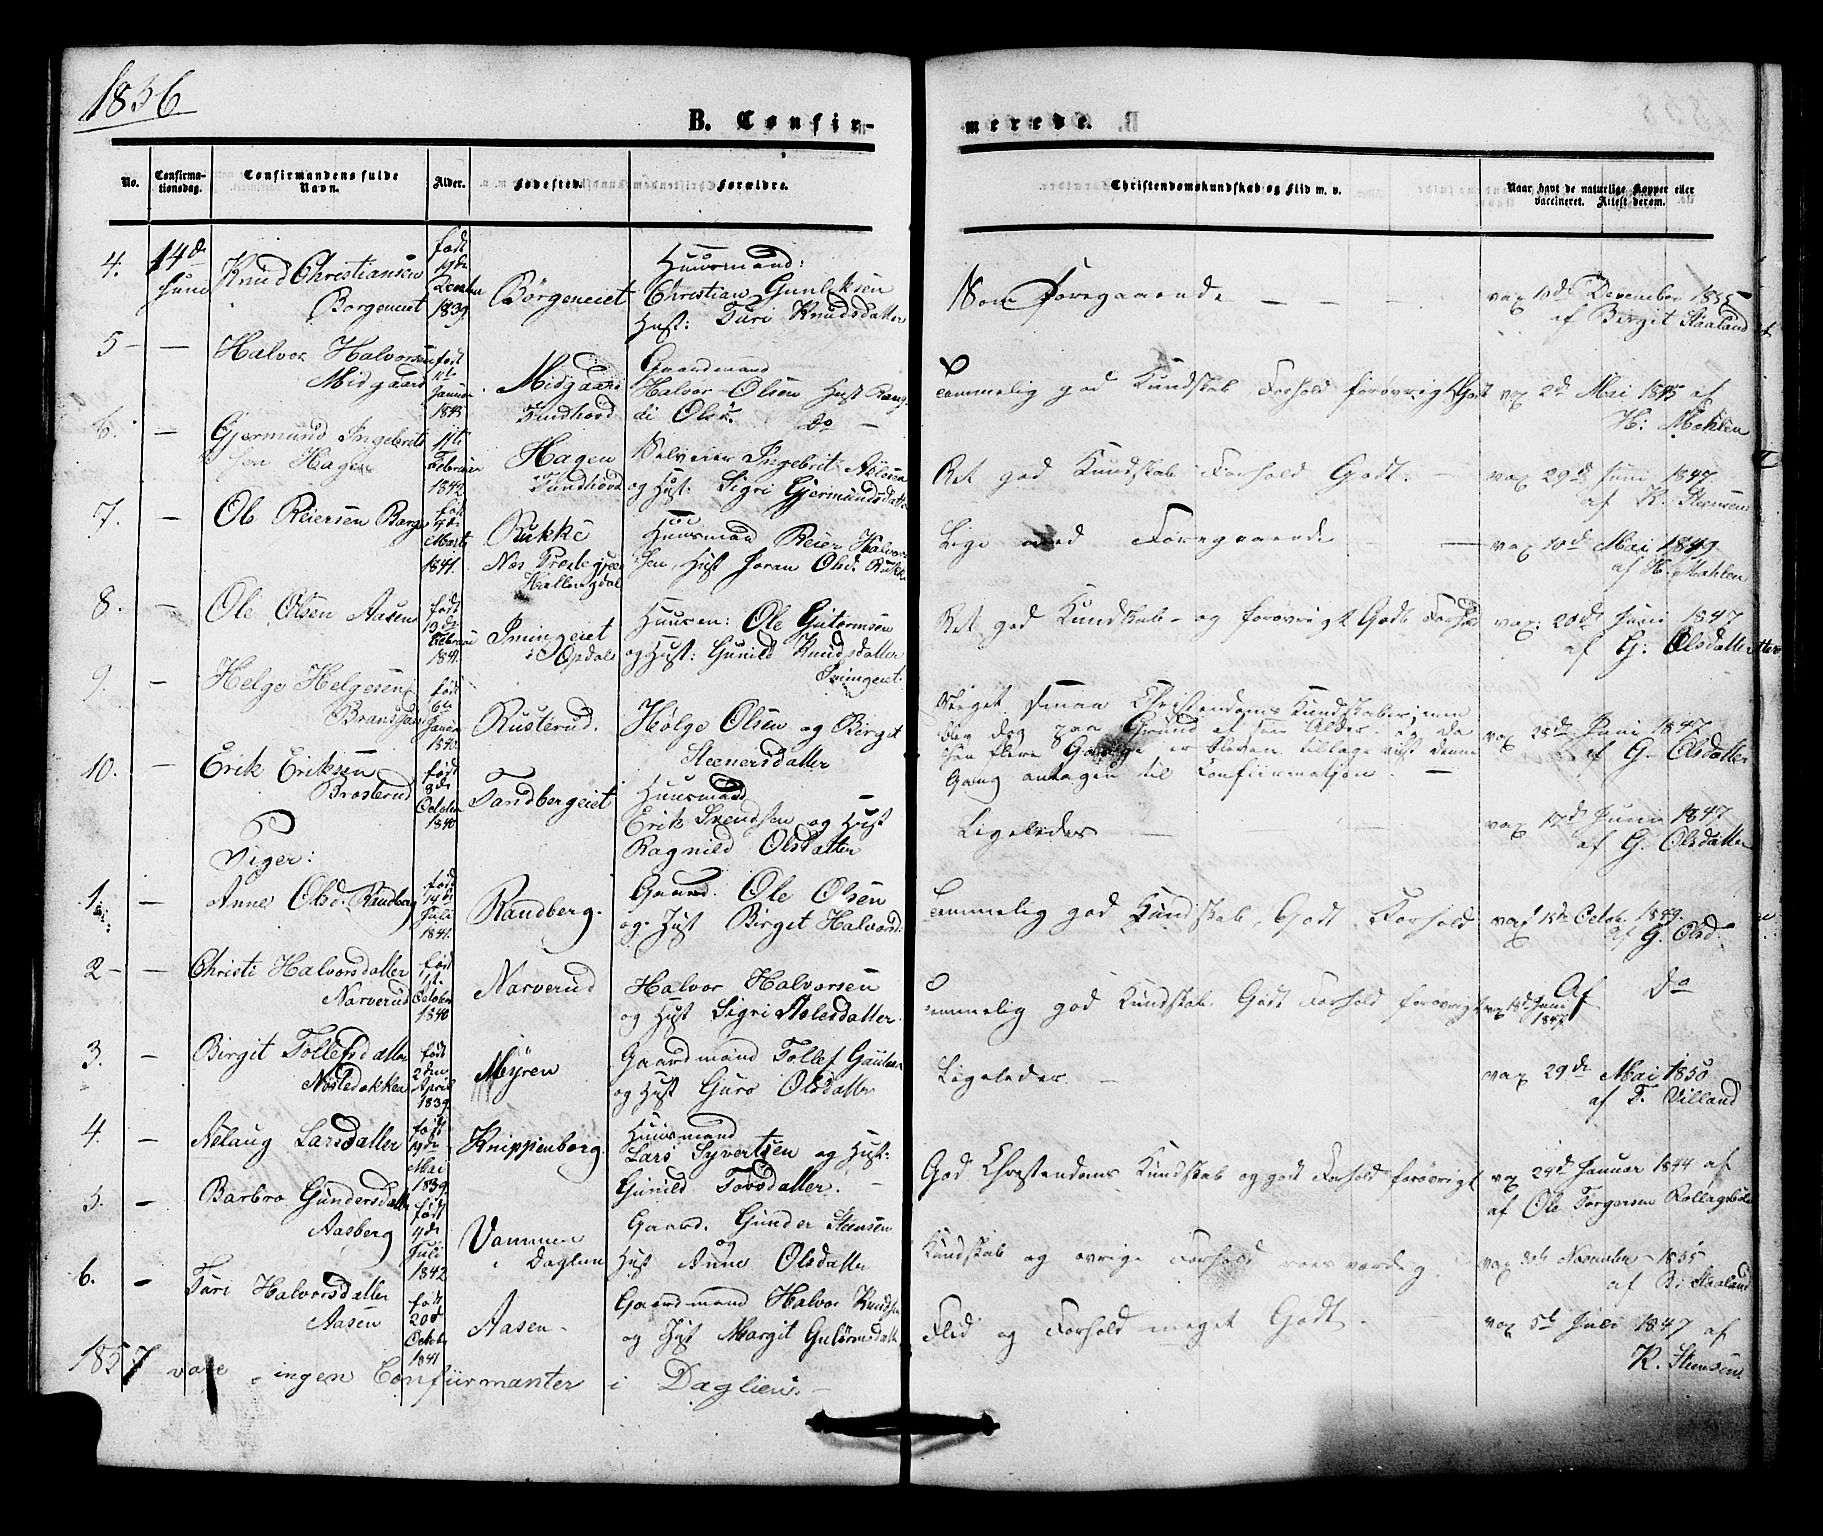 1856
B. Confir-
merede.
No.
Confirma-
tionsdag.
Confirmandens fulde
Navn.
Alder.
Fødested.
Forældre.
Christendomskundskab og Flid m. v.
Naar havt de naturlige Kopper eller
vaccineret. Attest derom.
4. 14de Juni
Knud Christiansen
Borgeneiet
født
19de
Decmbr
1839
Børgeneiet
Huusmand:
Christian Gunleksen
Hust: Turi Knudsdatter
Som Foregaaende — — —
vax 10de December 1855
af Bergit Staaland
5 — —
Halvor Halvorsen
Midgaard
født
11te
Januar
1843
Midgaard
Tundhovd
Gaardmand
Halvor Olsen Hust Rang-
di Olsd. do —
Temmelig god Kundskab Forhold forøvrigt Godt
vax 2de Mai 1845 af
H: Mæhlen
6. —
Gjermund Ingebrits
sen Hagen
11te
Februar
1842
Hagen
Tundhovd
Selveier Ingebrit Asleson
og Hust: Sigri Gjermundsdatter
Ret god Kundskab Forhold Godt. —
vax 29de Juni 1847
af K. Steensen
7. —
Ole Reiersen Barge
født
4de
Marts
1841.
Rukke
Nes Prestegjeld
Hallingdal
Huusmand Reier Halvor
sen, Hust Joran Olsd. Rukke
Lige med Foregaaende —
vax 10de Mai 1849
af H. Mæhlen
8. —
Ole Olsen Aasen
født
13de
Februar
1841
Imingeiet
i Opdal
Huusm: Ole Gutormsen
og Hust: Gunild Knudsdatter
Imingeiet.
Ret god Kundskab og forøvrigt Godt Forhold
vax: 20de Juni 1847
af G: Olsdatter
9. —
Helge Helgesen
født
6te
Januar
1840
Rusterud.
Helge Olsen og Birget
Steenersdatter
Meget smaa Christendoms Kundskaber; men
blev dog paa Grund af sin Alder og da
han flere Gange er bleven tilbageviist denne
Gang antagen til Confirmation. —
vax 28de Juni 1847
af G. Olsdatter
10. —
Erik Eriksen
Brosterud
født
8de
October
1840
Tandbergeiet
Huusmand —
Erik Svendsen og Hust
Ragnild Olsdatter
Ligeledes — —
vax 17de Juni 1847
af G. Olsdatter
Piger:
1. —
Anne Olsd. Randberg
født
14de
Juli
1841.
Randberg.
Gaard. Ole Olsen
og Hust Birget Halvorsd.
Temmelig god Kundskab, Godt Forhold
vax 18de Octob. 1849.
af G. Olsd.
2 — —
Christi Halvorsdatter
Narverud
født
11te
October
1840
Narverud
Halvor Halvorsen
og Hust Sigri Aslesdatter.
Temmelig god Kundskab. Godt Forhold forøvrigt
vax 18de Juni
1847
Af do
3. —
Birgit Tollefsdatter
Nøstedokken
født
2den
April
1839
Meyren
Gaardmand Tollef Gaulesen
og Hust Guro Olsdatter
Ligeledes —
vax 29de Mai 1850
af T. Villand
4. —
Nelaug Larsdatter
født
19de
Mai
1839
Knippenborg.
Huusmand
Lars Syvertsen og Hust:
Gunild Tovsdatter. —
God Christendoms Kundskab og godt Forhold forøvrigt
vax 24de Januar 1844 af
af Ole Torgersen Rollagsbøle
5. —
Barbro Gundersdatter
Aasberg
født
4de
Juli
1842
Vammen
i Daglien
Gaard. Gunder Steensen
og
Hust Anne Olsdatter
Kundskab og øvrige Forhold roesværdig.
vax 30te November — 1855
af B: Staaland
6. —
Turi Halvorsdatter
Aasen
født
20de
Octobr
1841
Aasen —
Gaardmand Halvor Knudsen
og Hust Margit Gulormsdatter
Flid og Forhold meget Godt. —
vax 5te Juli 1847 af
K. Steensen
1857 vare ingen Confiirmanter i Daglien. —